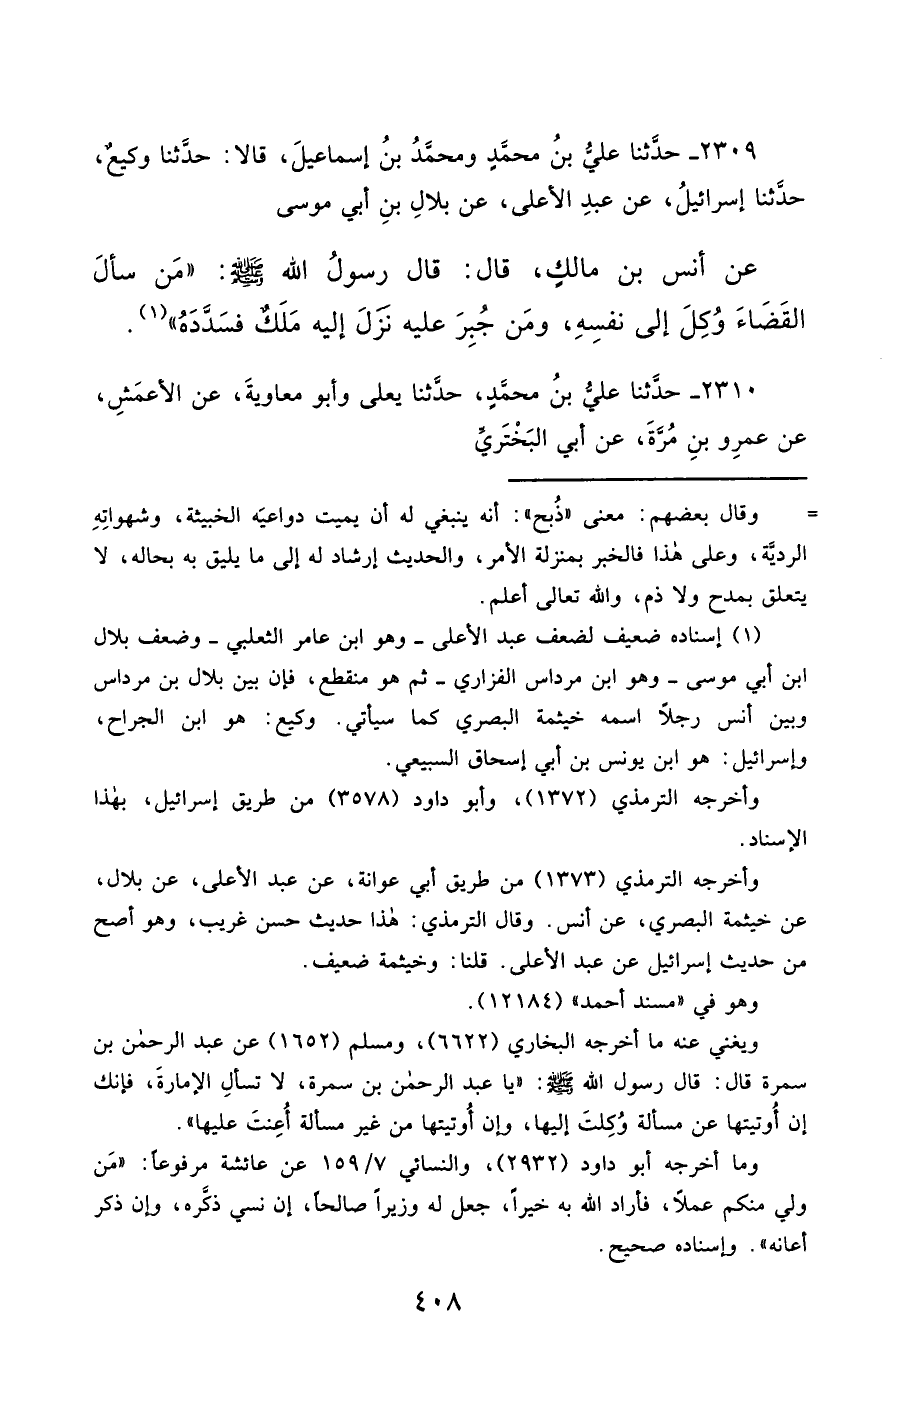 ٢٣٠٩ـ حدَّثنا عليُّ بنُ محمَّدٍ ومحمَّدُ بنُ إسماعيلَ، قالا: حدَّثنا وكيعٌ،
حدَّثنا إسرائيلُ، عن عبدِ الأعلى، عن بلالِ بنِ أبي موسى
عن أنس بن مالكٍ، قال: قال رسولُ الله ﷺ: «مَن سألَ
القَضَاءَ وُكِلَ إلى نفسِهِ، ومَن جُبِرَ عليه نَزَلَ إليه مَلَكٌ فسَدَّدَهُ»(١).
٢٣١٠ـ حدَّثنا عليُّ بنُ محمَّدٍ، حدَّثنا يعلى وأبو معاويةَ، عن الأعمَشِ،
عن عمرِو بنِ مُرَّةَ، عن أبي البَخْتَريِّ
= وقال بعضهم: معنى «ذُبح»: أنه ينبغي له أن يميت دواعيَه الخبيثة، وشهواتِهِ
الرديَّة، وعلى هٰذا فالخبر بمنزلة الأمر، والحديث إرشاد له إلى ما يليق به بحاله، لا
يتعلق بمدح ولا ذم، والله تعالى أعلم.
(١) إسناده ضعيف لضعف عبد الأعلى ـ وهو ابن عامر الثعلبي ـ وضعف بلال
ابن أبي موسى ـ وهو ابن مرداس الفزاري ـ ثم هو منقطع، فإن بين بلال بن مرداس
وبين أنس رجلاً اسمه خيثمة البصري كما سيأتي. وكيع: هو ابن الجراح،
وإسرائيل: هو ابن يونس بن أبي إسحاق السبيعي.
وأخرجه الترمذي (١٣٧٢)، وأبو داود (٣٥٧٨) من طريق إسرائيل، بهٰذا
الإسناد.
وأخرجه الترمذي (١٣٧٣) من طريق أبي عوانة، عن عبد الأعلى، عن بلال،
عن خيثمة البصري، عن أنس. وقال الترمذي: هٰذا حديث حسن غريب، وهو أصح
من حديث إسرائيل عن عبد الأعلى. قلنا: وخيثمة ضعيف.
وهو في «مسند أحمد» (١٢١٨٤).
ويغني عنه ما أخرجه البخاري (٦٦٢٢)، ومسلم (١٦٥٢) عن عبد الرحمٰن بن
سمرة قال: قال رسول الله ﷺ: «يا عبد الرحمٰن بن سمرة، لا تسألِ الإمارةَ، فإنك
إن أُوتيتها عن مسألة وُكِلتَ إليها، وإن أُوتيتها من غير مسألة أُعِنتَ عليها».
وما أخرجه أبو داود (٢٩٣٢)، والنسائي ٧/ ١٥٩ عن عائشة مرفوعاً: «مَن
ولي منكم عملاً، فأراد الله به خيراً، جعل له وزيراً صالحاً، إن نسي ذكَّره، وإن ذكر
أعانه». وإسناده صحيح.
٤٠٨